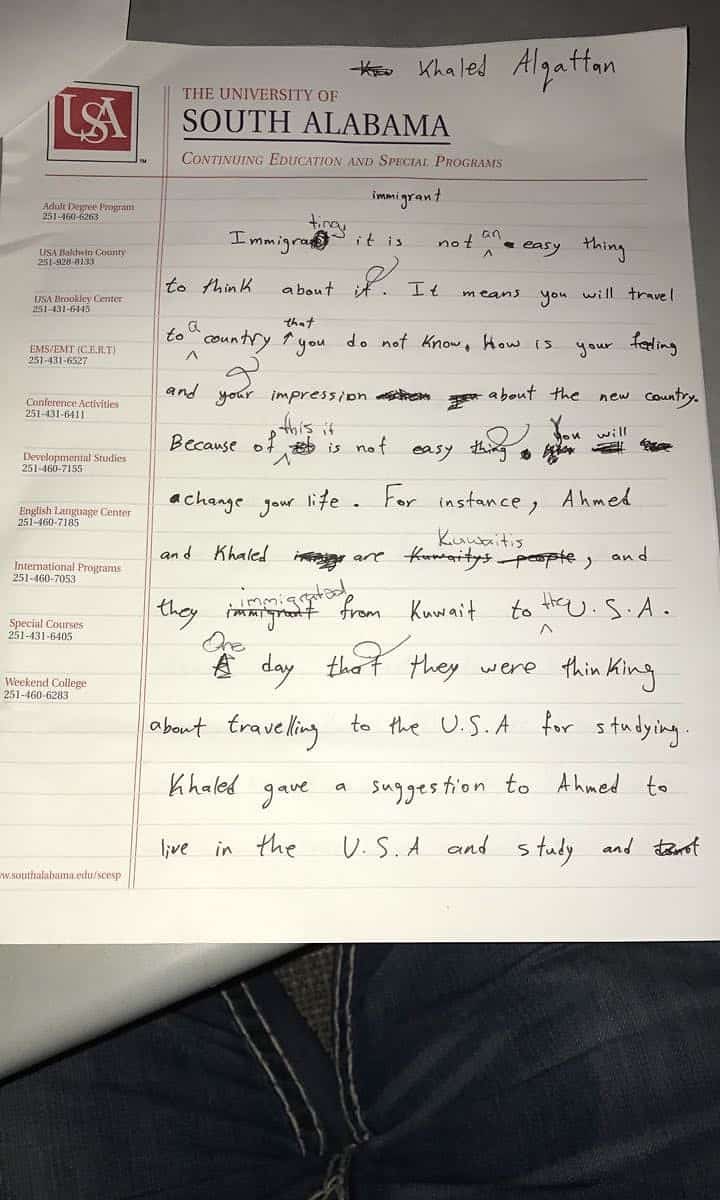 Khaled Algattan
USA
THE UNIVERSITY OF
SOUTH ALABAMA
CONTINUING EDUCATION AND SPECIAL PROGRAMS
Adult Degree Program
251-460-6263
USA Baldwin County
251-928-8133
USA Brookley Center
251-431-6445
EMS/EMT (C.E.R.T)
251-431-6527
Conference Activities
251-431-6411
Developmental Studies
251-460-7155
English Language Center
251-460-7185
International Programs
251-460-7053
Special Courses
251-431-6405
Weekend College
251-460-6283
ww.southalabama.edu/scesp
immigrant
Immigrating it is not an easy thing
to think about it. It means you will travel
to a country that you do not know. How is your feeling
and your impression about the new country.
Because of this it is not easy thing. You will
change your life. For instance, Ahmed
and Khaled are Kuwaitys people Kuwaitis, and
they immigrant immigrated from Kuwait to the U.S.A.
A One day that they were thinking
about travelling to the U.S.A for studying.
Khaled gave a suggestion to Ahmed to
live in the U.S.A and study and